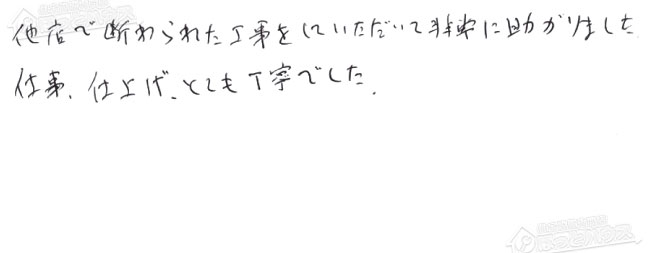 他店で断わられた工事をしていただいて非常に助かりました
仕事、仕上げ、とても丁寧でした。